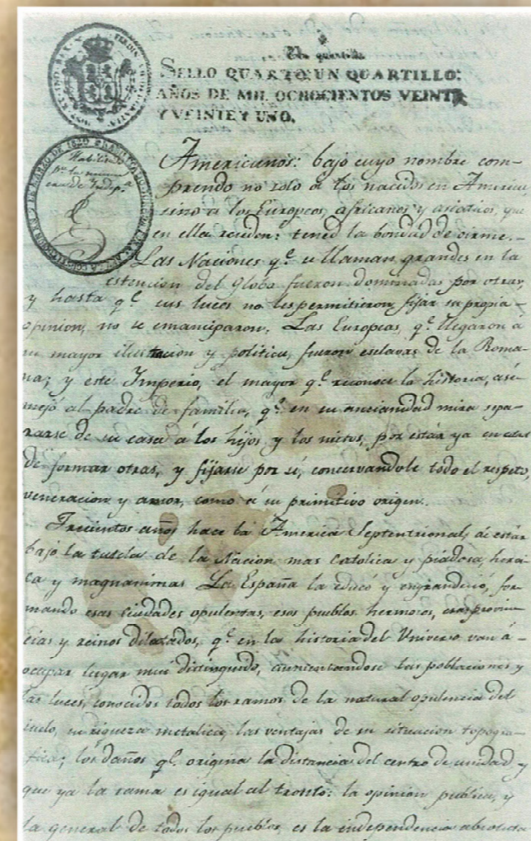 Un quartillo
SELLO QUARTO: UN QUARTILLO:
AÑOS DE MIL OCHOCIENTOS VEINTE
Y VEINTE Y UNO.
Habilitado
Americanos: bajo cuyo nombre com-
prendo no solo a los nacidos en America
sino a los Europeos, africanos y asiaticos, que
en ella residen: tened la bondad de oirme.
Las Naciones q.e se llaman grandes en la
estencion del Globo fueron dominadas por otras,
y hasta q.e sus luces no les permitieron fijar su propia
opinion, no se emanciparon. Las Europeas, q.e llegaron á
la mayor ilustracion y politica, fueron esclavas de la Roma-
na; y este Imperio, el mayor q.e reconoce la historia, ase-
mejó al padre de familia, q.e en su ancianidad mira sepa-
rarse de su casa á los hijos, y los nietos, por estar ya en edad
de formar otras, y fijarse por sí, conservandole todo el respeto,
veneracion y amor, como á su primitivo origen.
Trecientos años hace la America Septentrional, de estar
bajo la tutela de la Nacion mas catolica y piadosa, heroi-
ca y magnanima. La España la educó y engrandeció, for-
mando esas ciudades opulentas, esos pueblos hermosos, esas provin-
cias y reinos dilatados, q.e en la historia del Universo van á-
ocupar lugar mui distinguido, aumentandose las poblaciones y
las luces, conocidos todos los ramos de la natural opulencia del
suelo, su riqueza metalica, las ventajas de su situacion topogra-
fica; los daños q.e origina la distancia del centro de unidad, y
que ya la rama es igual al tronco: la opinion publica, y
la general de todos los pueblos, es la independencia absoluta